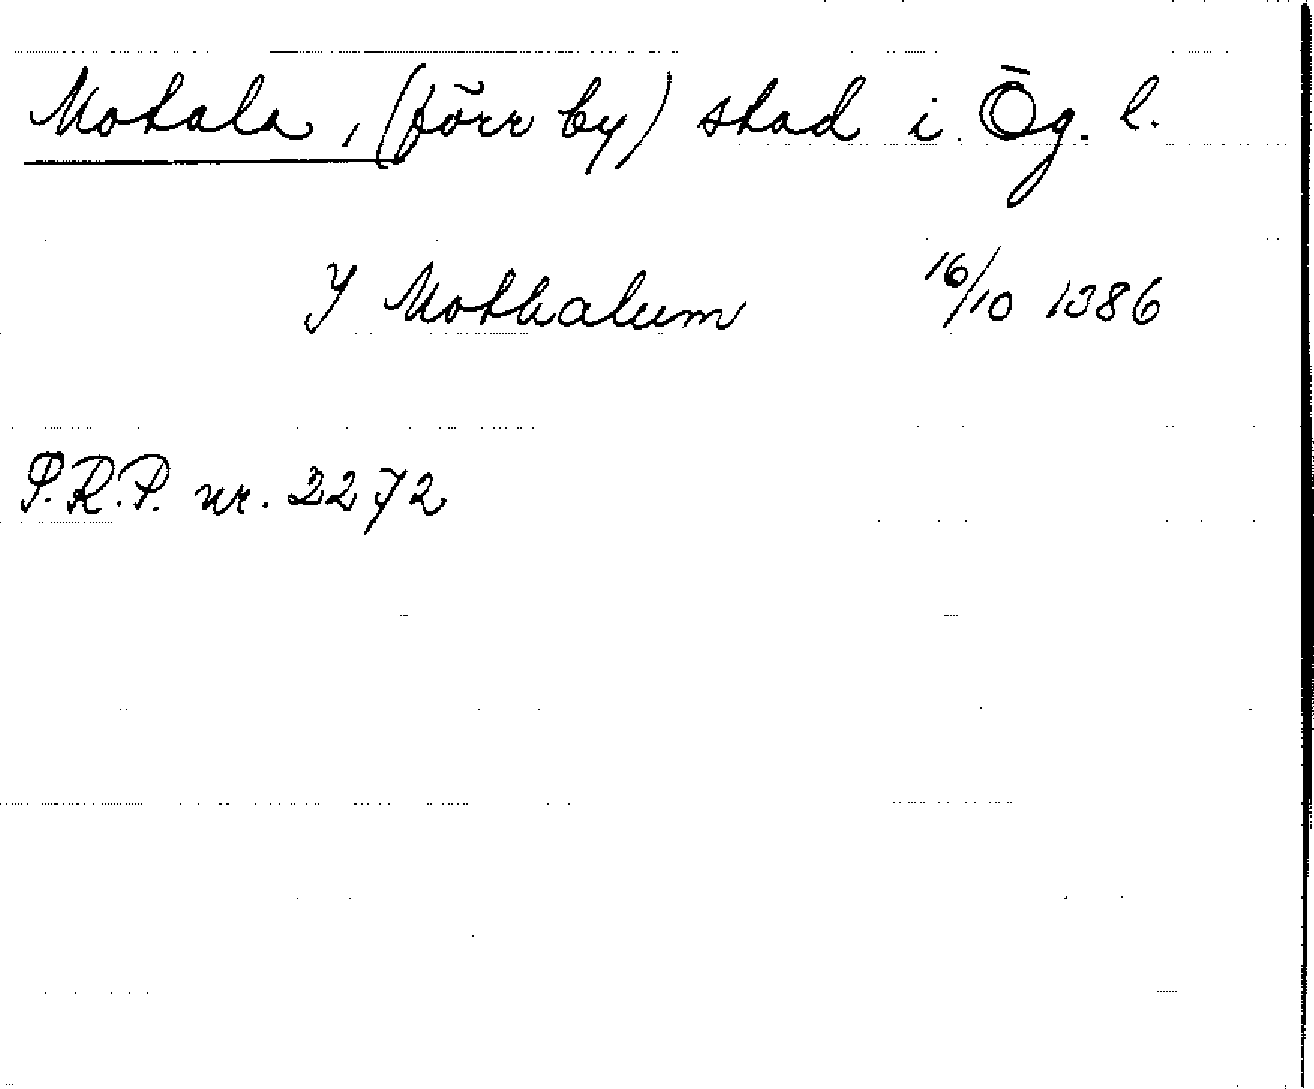 Motala, (förr by) stad i Ög. l.
I Mothalum 16/10 1386
P.R.P. nr. 2272